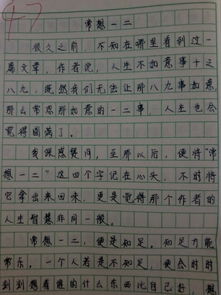 47
常想一二
很久之前，不知在哪里看到过一
篇文章，作者说，人生不如意事十之
八九，既然我们无法让那八九事如意，
那么常思那如意的一二事，人生也会
觉得圆满了。
我很感赞同，至那以后，便将"常
想一二"这四个字记在心头，不时将
它拿出来回味，更是觉得那个作者的
人生智慧非同一般。
常想一二，便是知足。知足方能
常乐，一个人若是不知足，便会时时
刻刻想着谁的什么东西比自己好，